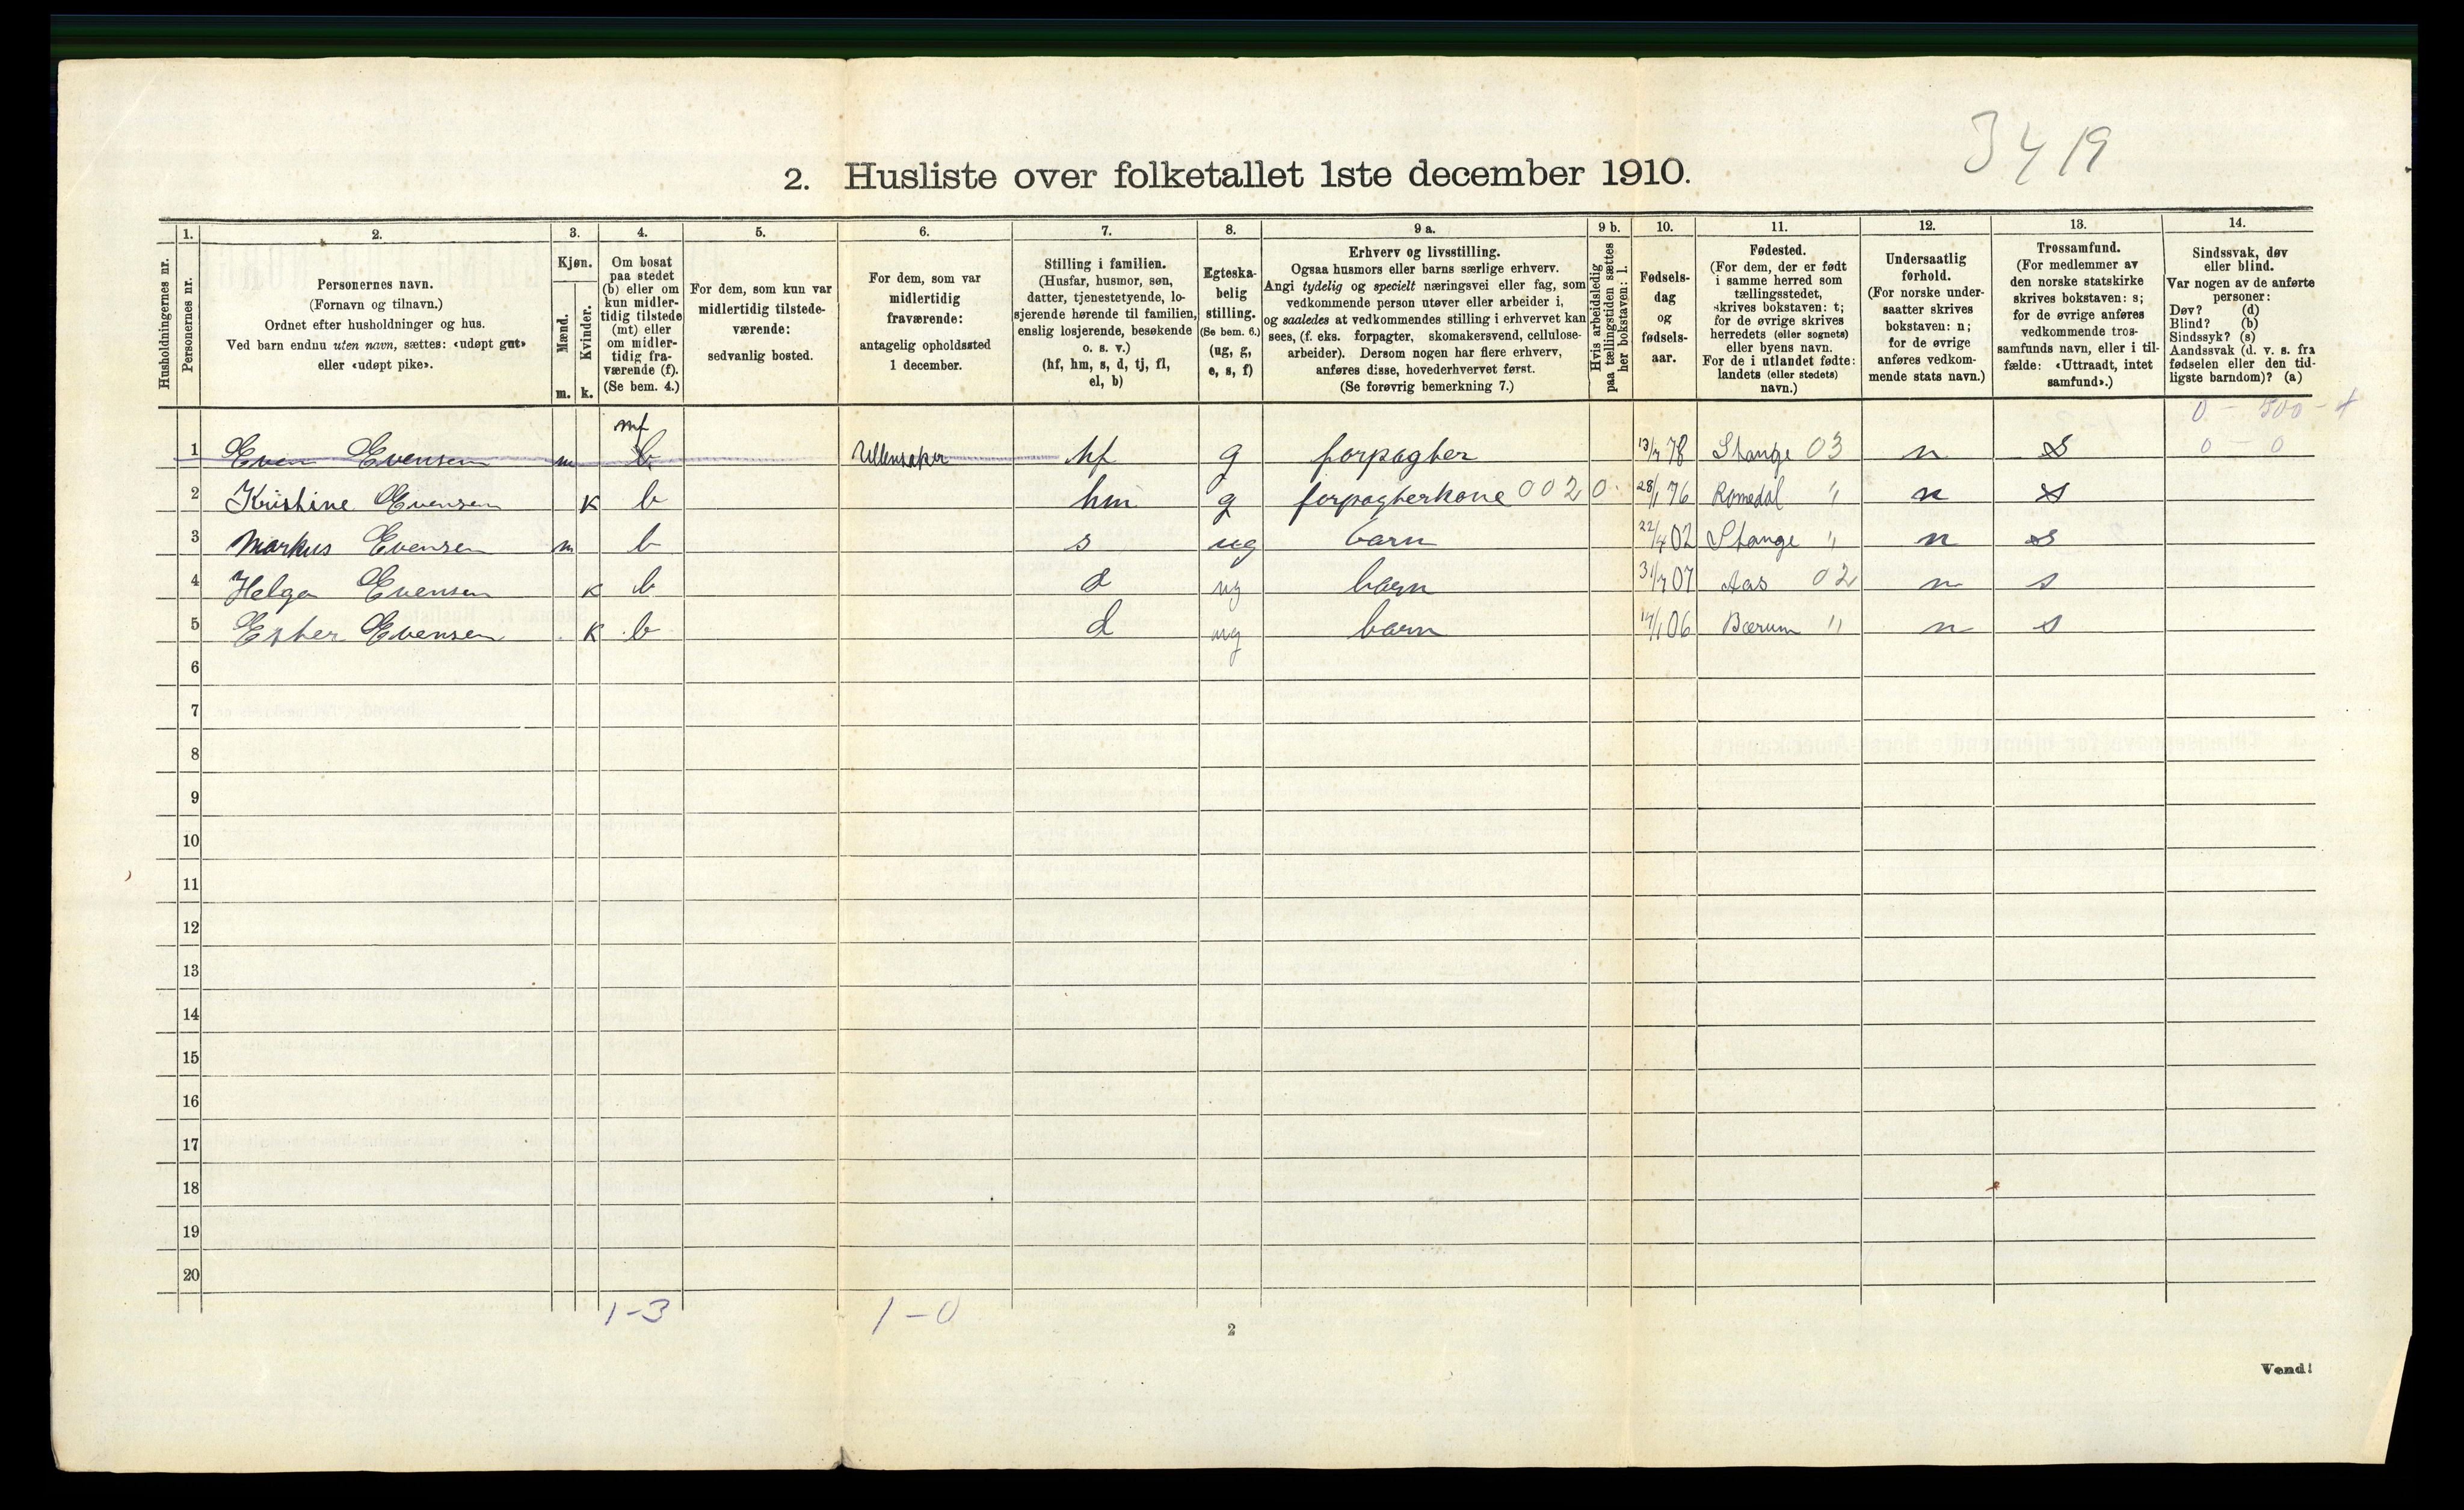 3419
2. Husliste over folketallet 1ste december 1910.
Husholdningernes nr.
1.
Personernes nr.
2.
Personernes navn.
(Fornavn og tilnavn.)
Ordnet efter husholdninger og hus.
Ved barn endnu uten navn, sættes: «udøpt gut»
eller «udøpt pike».
3.
Kjøn.
Mænd.
Kvinder.
m. k.
4.
Om bosat
paa stedet
(b) eller om
kun midler-
tidig tilstede
(mt) eller
om midler-
tidig fra-
værende (f).
(Se bem. 4.)
5.
For dem, som kun var
midlertidig tilstede-
værende:
sedvanlig bosted.
6.
For dem, som var
midlertidig
fraværende:
antagelig opholdssted
1 december.
7.
Stilling i familien.
(Husfar, husmor, søn,
datter, tjenestetyende, lo-
sjerende hørende til familien,
enslig losjerende, besøkende
o. s. v.)
(hf, hm, s, d, tj, fl,
el, b)
8.
Egteska-
belig
stilling.
(Se bem. 6.)
(ug, g,
e, s, f)
9 a.
Erhverv og livsstilling.
Ogsaa husmors eller barns særlige erhverv.
Angi tydelig og specielt næringsvei eller fag, som
vedkommende person utøver eller arbeider i,
og saaledes at vedkommendes stilling i erhvervet kan
sees, (f. eks. forpagter, skomakersvend, cellulose-
arbeider). Dersom nogen har flere erhverv,
anføres disse, hovederhvervet først.
(Se forøvrig bemerkning 7.)
9 b.
Hvis arbeidsledig
paa tællingstiden sættes
her bokstaven: l.
10.
Fødsels-
dag
og
fødsels-
aar.
11.
Fødested.
(For dem, der er født
i samme herred som
tællingsstedet,
skrives bokstaven: t;
for de øvrige skrives
herredets (eller sognets)
eller byens navn.
For de i utlandet fødte:
landets (eller stedets)
navn.)
12.
Undersaatlig
forhold.
(For norske under-
saatter skrives
bokstaven: n;
for de øvrige
anføres vedkom-
mende stats navn.)
13.
Trossamfund.
(For medlemmer av
den norske statskirke
skrives bokstaven: s;
for de øvrige anføres
vedkommende tros-
samfunds navn, eller i til-
fælde: «Uttraadt, intet
samfund».)
14.
Sindssvak, døv
eller blind.
Var nogen av de anførte
personer:
Døv? (d)
Blind? (b)
Sindssyk? (s)
Aandssvak (d. v. s. fra
fødselen eller den tid-
ligste barndom)? (a)
mf 0 - 500 -
1 Even Evensen m b Ullensaker hf g forpagter 13/7 78 Stange 03 n s 0 0
2 Kristine Evensen k b hm g forpagterkone 002 0 28/1 76 Romedal " n s
3 Markus Evensen m b s ug barn 22/4 02 Stange " n s
4 Helga Evensen k b d ug barn 31/7 07 Aas 02 n s
5 Esther Evensen k b d ug barn 14/1 06 Bærum " n s
6
7
8
9
10
11
12
13
14
15
16
17
18
19
20
1-3 1-0
2
Vend!